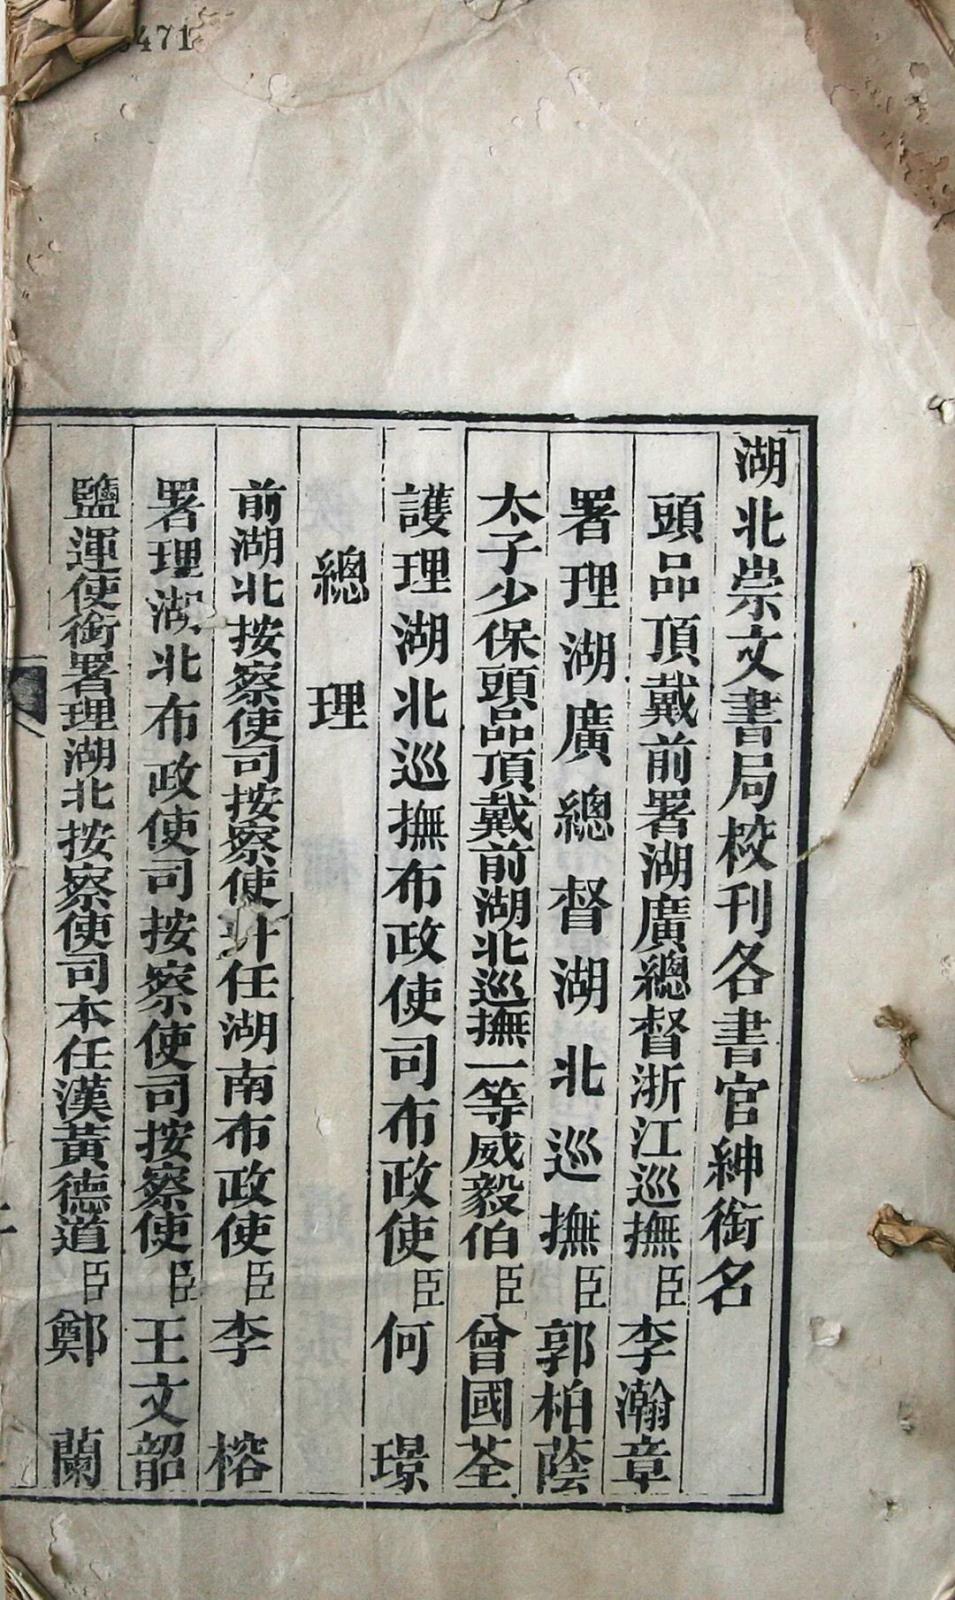 471
湖北崇文書局校刊各書官紳銜名
頭品頂戴前署湖廣總督浙江巡撫臣李瀚章
署理湖廣總督湖北巡撫臣郭柏蔭
太子少保頭品頂戴前湖北巡撫一等威毅伯臣曾國荃
護理湖北巡撫布政使司布政使臣何璟
總理
前湖北按察使司按察使升任湖南布政使臣李榕
署理湖北布政使司按察使司按察使臣王文韶
鹽運使銜署理湖北按察使司本任漢黃德道臣鄭蘭